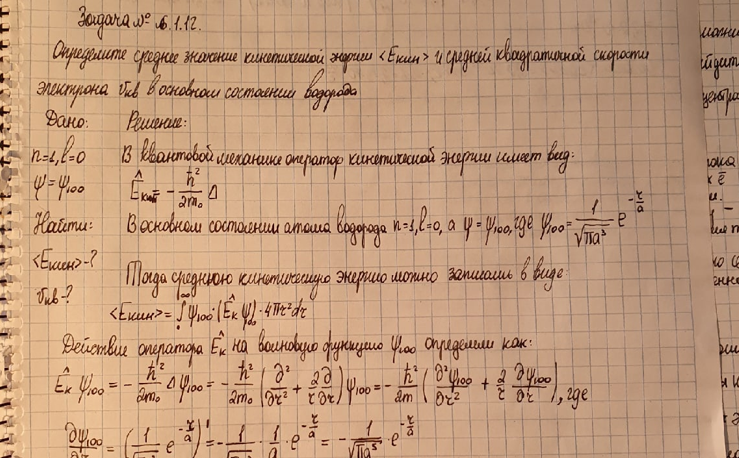 Задача № 6.1.12.
Определите среднее значение кинетической энергии <Eкин> и средней квадратичной скорости
электрона vкв в основном состоянии водорода
Дано: Решение:
n=1, l=0 В квантовой механике оператор кинетической энергии имеет вид:
ψ=ψ₁₀₀ Êкин = - ħ²/2m₀ Δ
Найти: В основном состоянии атома водорода n=1, l=0, а ψ=ψ₁₀₀, где ψ₁₀₀ = 1/√(πa³) e^(-r/a)
<Eкин>-?
vкв-? Тогда среднюю кинетическую энергию можно записать в виде:
<Eкин> = ∫₀^∞ ψ₁₀₀·(Êк ψ)₁₀₀·4πr²dr
Действие оператора Êк на волновую функцию ψ₁₀₀ определим как:
Êк ψ₁₀₀ = - ħ²/2m₀ Δψ₁₀₀ = - ħ²/2m₀ (∂²/∂r² + 2/r ∂/∂r) ψ₁₀₀ = - ħ²/2m (∂²ψ₁₀₀/∂r² + 2/r ∂ψ₁₀₀/∂r), где
∂ψ₁₀₀/∂r = (1/√(πa³) e^(-r/a))' = - 1/√(πa³) · 1/a · e^(-r/a) = - 1/√(πa⁵) · e^(-r/a)